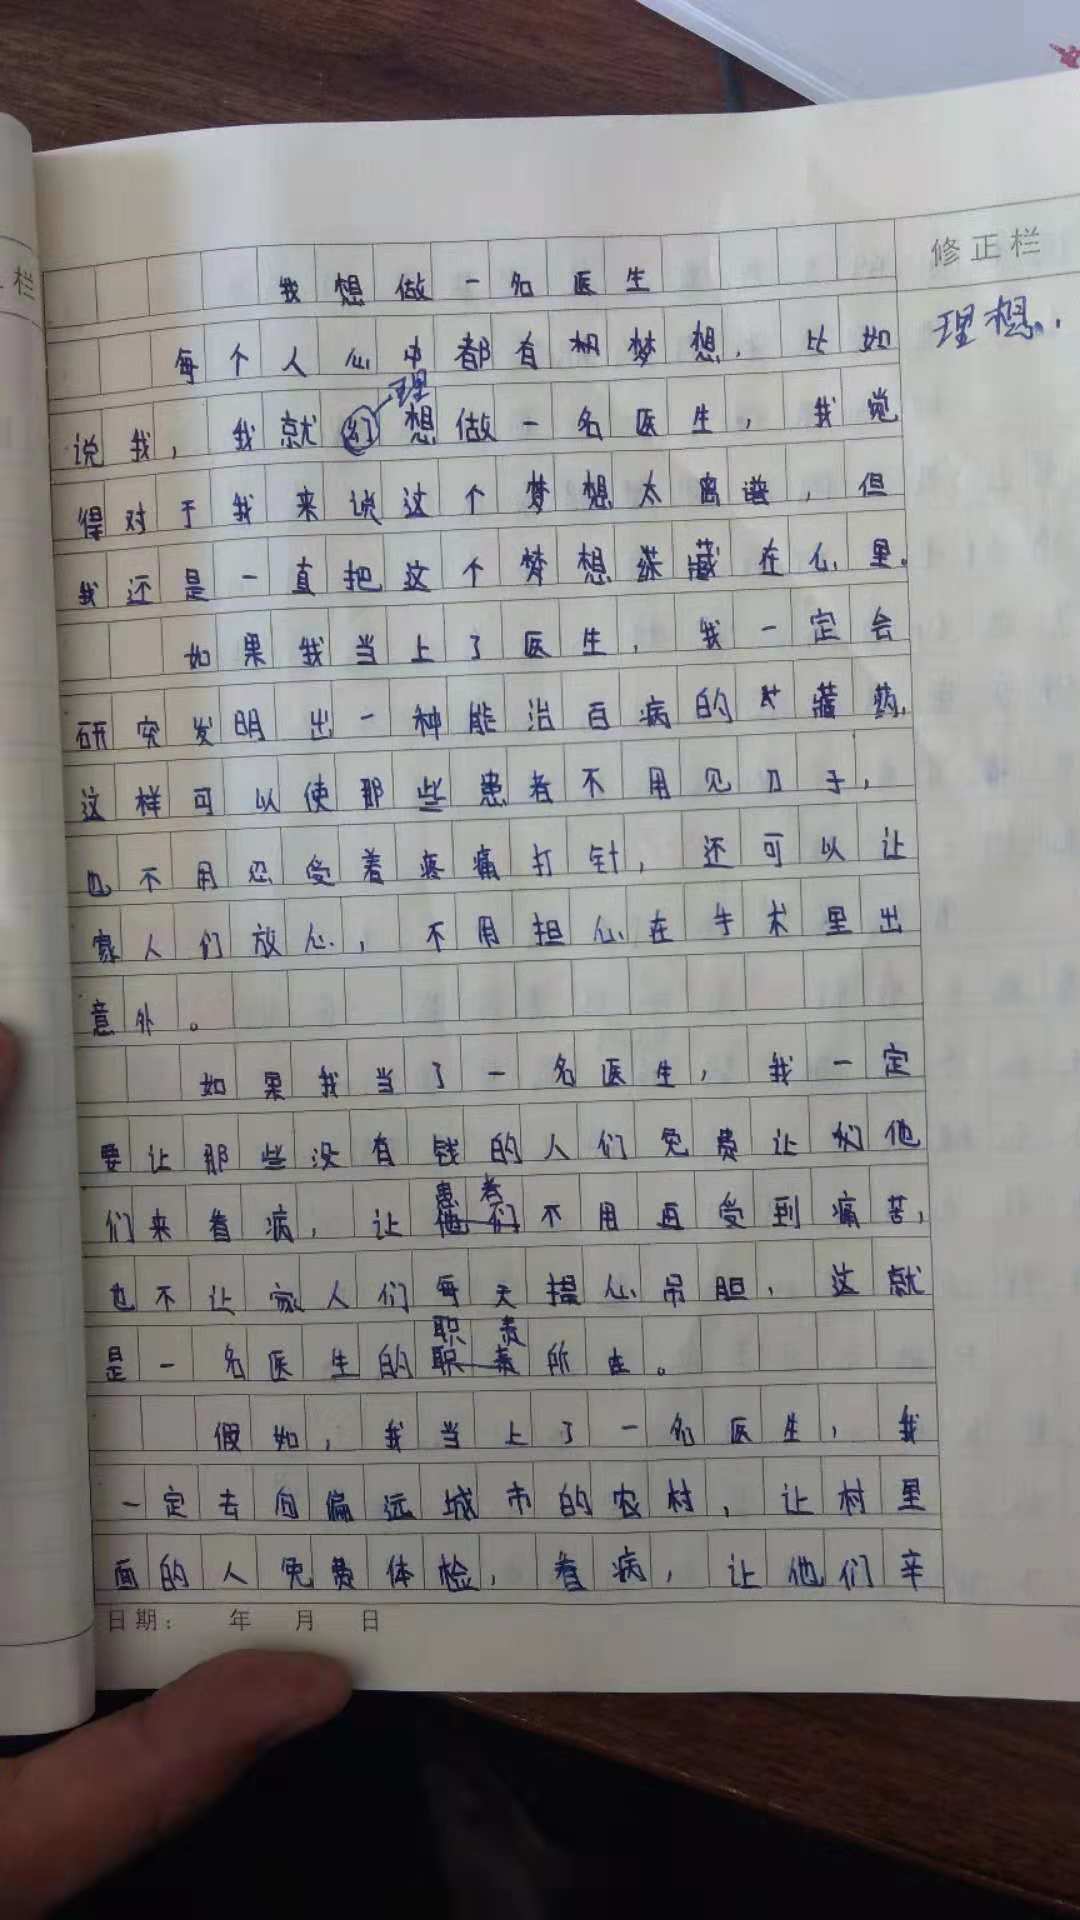 栏
修正栏
我想做一名医生
每个人心中都有梦想,比如
理想.
理
说我,我就幻想做一名医生,我觉
得对于我来说这个梦想太离谱,但
我还是一直把这个梦想深藏在心里.
如果我当上了医生,我一定会
研究发明出一种能治百病的药.
这样可以使那些患者不用见刀子,
也不用忍受着疼痛打针,还可以让
家人们放心,不用担心在手术里出
意外。
如果我当了一名医生,我一定
要让那些没有钱的人们免费让他
患者
们来看病,让他们不用再受到痛苦,
也不让家人们每天提心吊胆,这就
职责
是一名医生的职责所在。
假如,我当上了一名医生,我
一定去向偏远城市的农村,让村里
面的人免费体检,看病,让他们辛
日期: 年 月 日